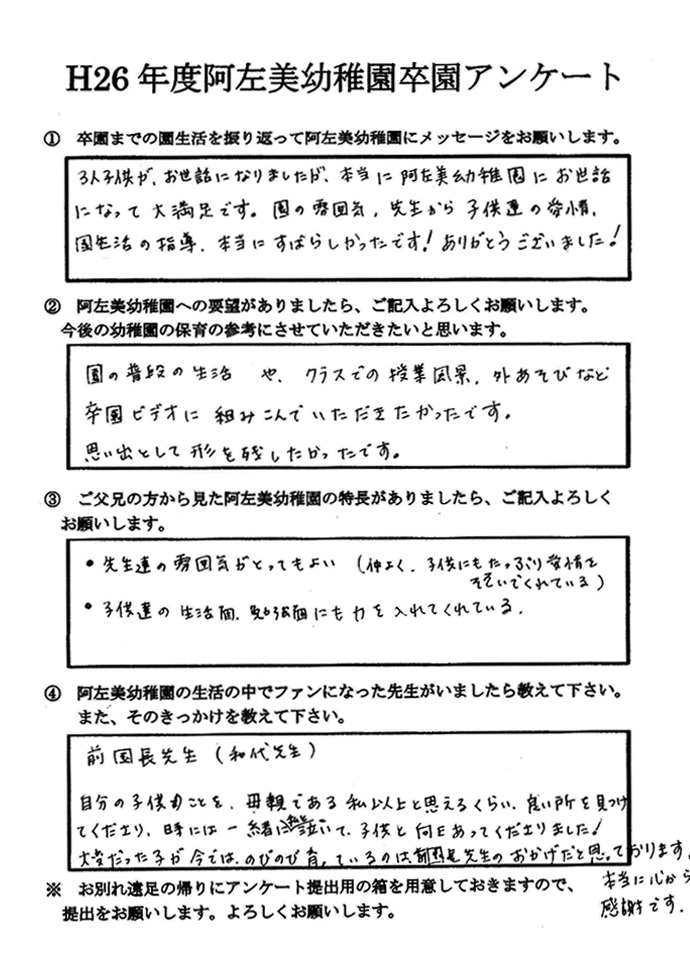 H26 年度阿左美幼稚園卒園アンケート
① 卒園までの園生活を振り返って阿左美幼稚園にメッセージをお願いします。
3人子供が、お世話になりましたが、本当に阿左美幼稚園にお世話
になって大満足です。園の雰囲気、先生から子供達の愛情、
園生活の指導、本当にすばらしかったです！ありがとうございました！
② 阿左美幼稚園への要望がありましたら、ご記入よろしくお願いします。
今後の幼稚園の保育の参考にさせていただきたいと思います。
園の普段の生活や、クラスでの授業風景、外あそびなど
卒園ビデオに組みこんでいただきたかったです。
思い出として形を残したかったです。
③ ご父兄の方から見た阿左美幼稚園の特長がありましたら、ご記入よろしく
お願いします。
• 先生達の雰囲気がとってもよい（仲よく、子供にもたっぷり愛情を
そそいでくれている）
• 子供達の生活面、勉強面にも力を入れてくれている。
④ 阿左美幼稚園の生活の中でファンになった先生がいましたら教えて下さい。
また、そのきっかけを教えて下さい。
前園長先生（和代先生）
自分の子供のことを、母親である私以上と思えるくらい、良い所を見つけ
てくださり、時には一緒に泣いて、子供と向きあってくださりました！
大変だった子が今では、のびのび育っているのは前園長先生のおかげだと思っております。
本当に心から
感謝です。
※ お別れ遠足の帰りにアンケート提出用の箱を用意しておきますので、
提出をお願いします。よろしくお願いします。